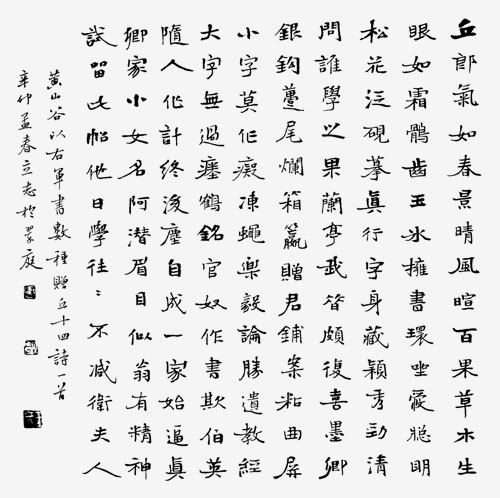 丘郎氣如春景晴風暄百果草木生
眼如霜鶻齒玉冰擁書環坐愛聰明
松花泛硯摹真行字身藏穎秀勁清
問誰學之果蘭亭武昔頗復喜墨卿
銀鉤蠆尾爛箱籯贈君鋪案粘曲屏
小字莫作癡凍蠅樂毅論勝遺教經
大字無過瘞鶴銘官奴作書欺伯英
隨人作計終後塵自成一家始逼真
卿家小女名阿潛眉目似翁有精神
試留此帖他日學往々不減衛夫人
黃山谷以右軍書數種贈丘十四詩一首
辛卯孟春立志於庭